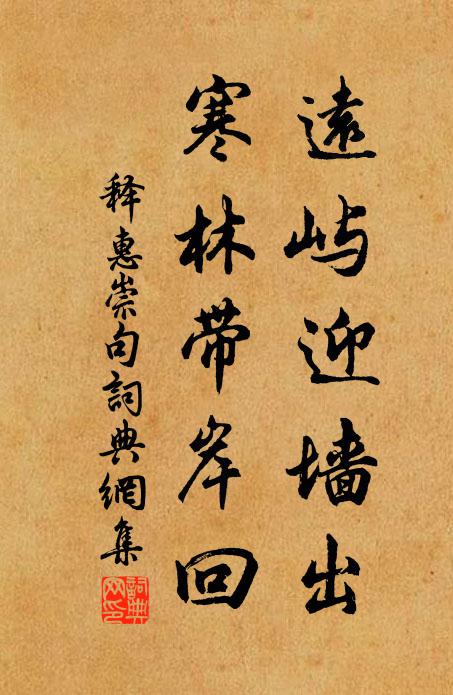 遠屿迎墙出
寒林带岸回
释惠崇句詞典網集
詞典
网印